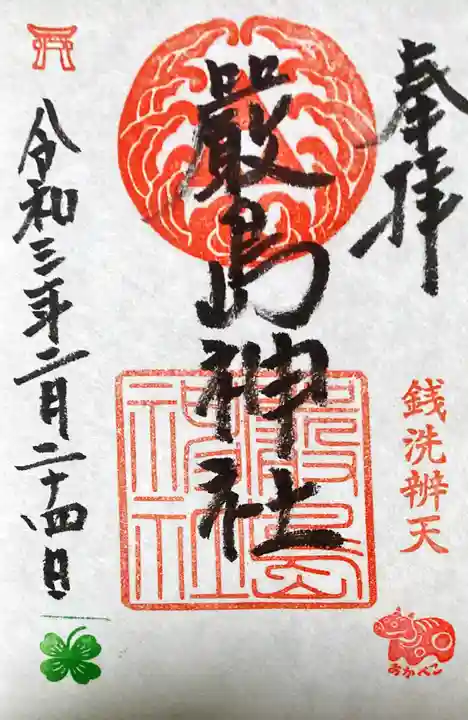 奉拝
銭洗辨天
あかべこ
嚴島神社
嚴島神社
令和三年二月二十四日